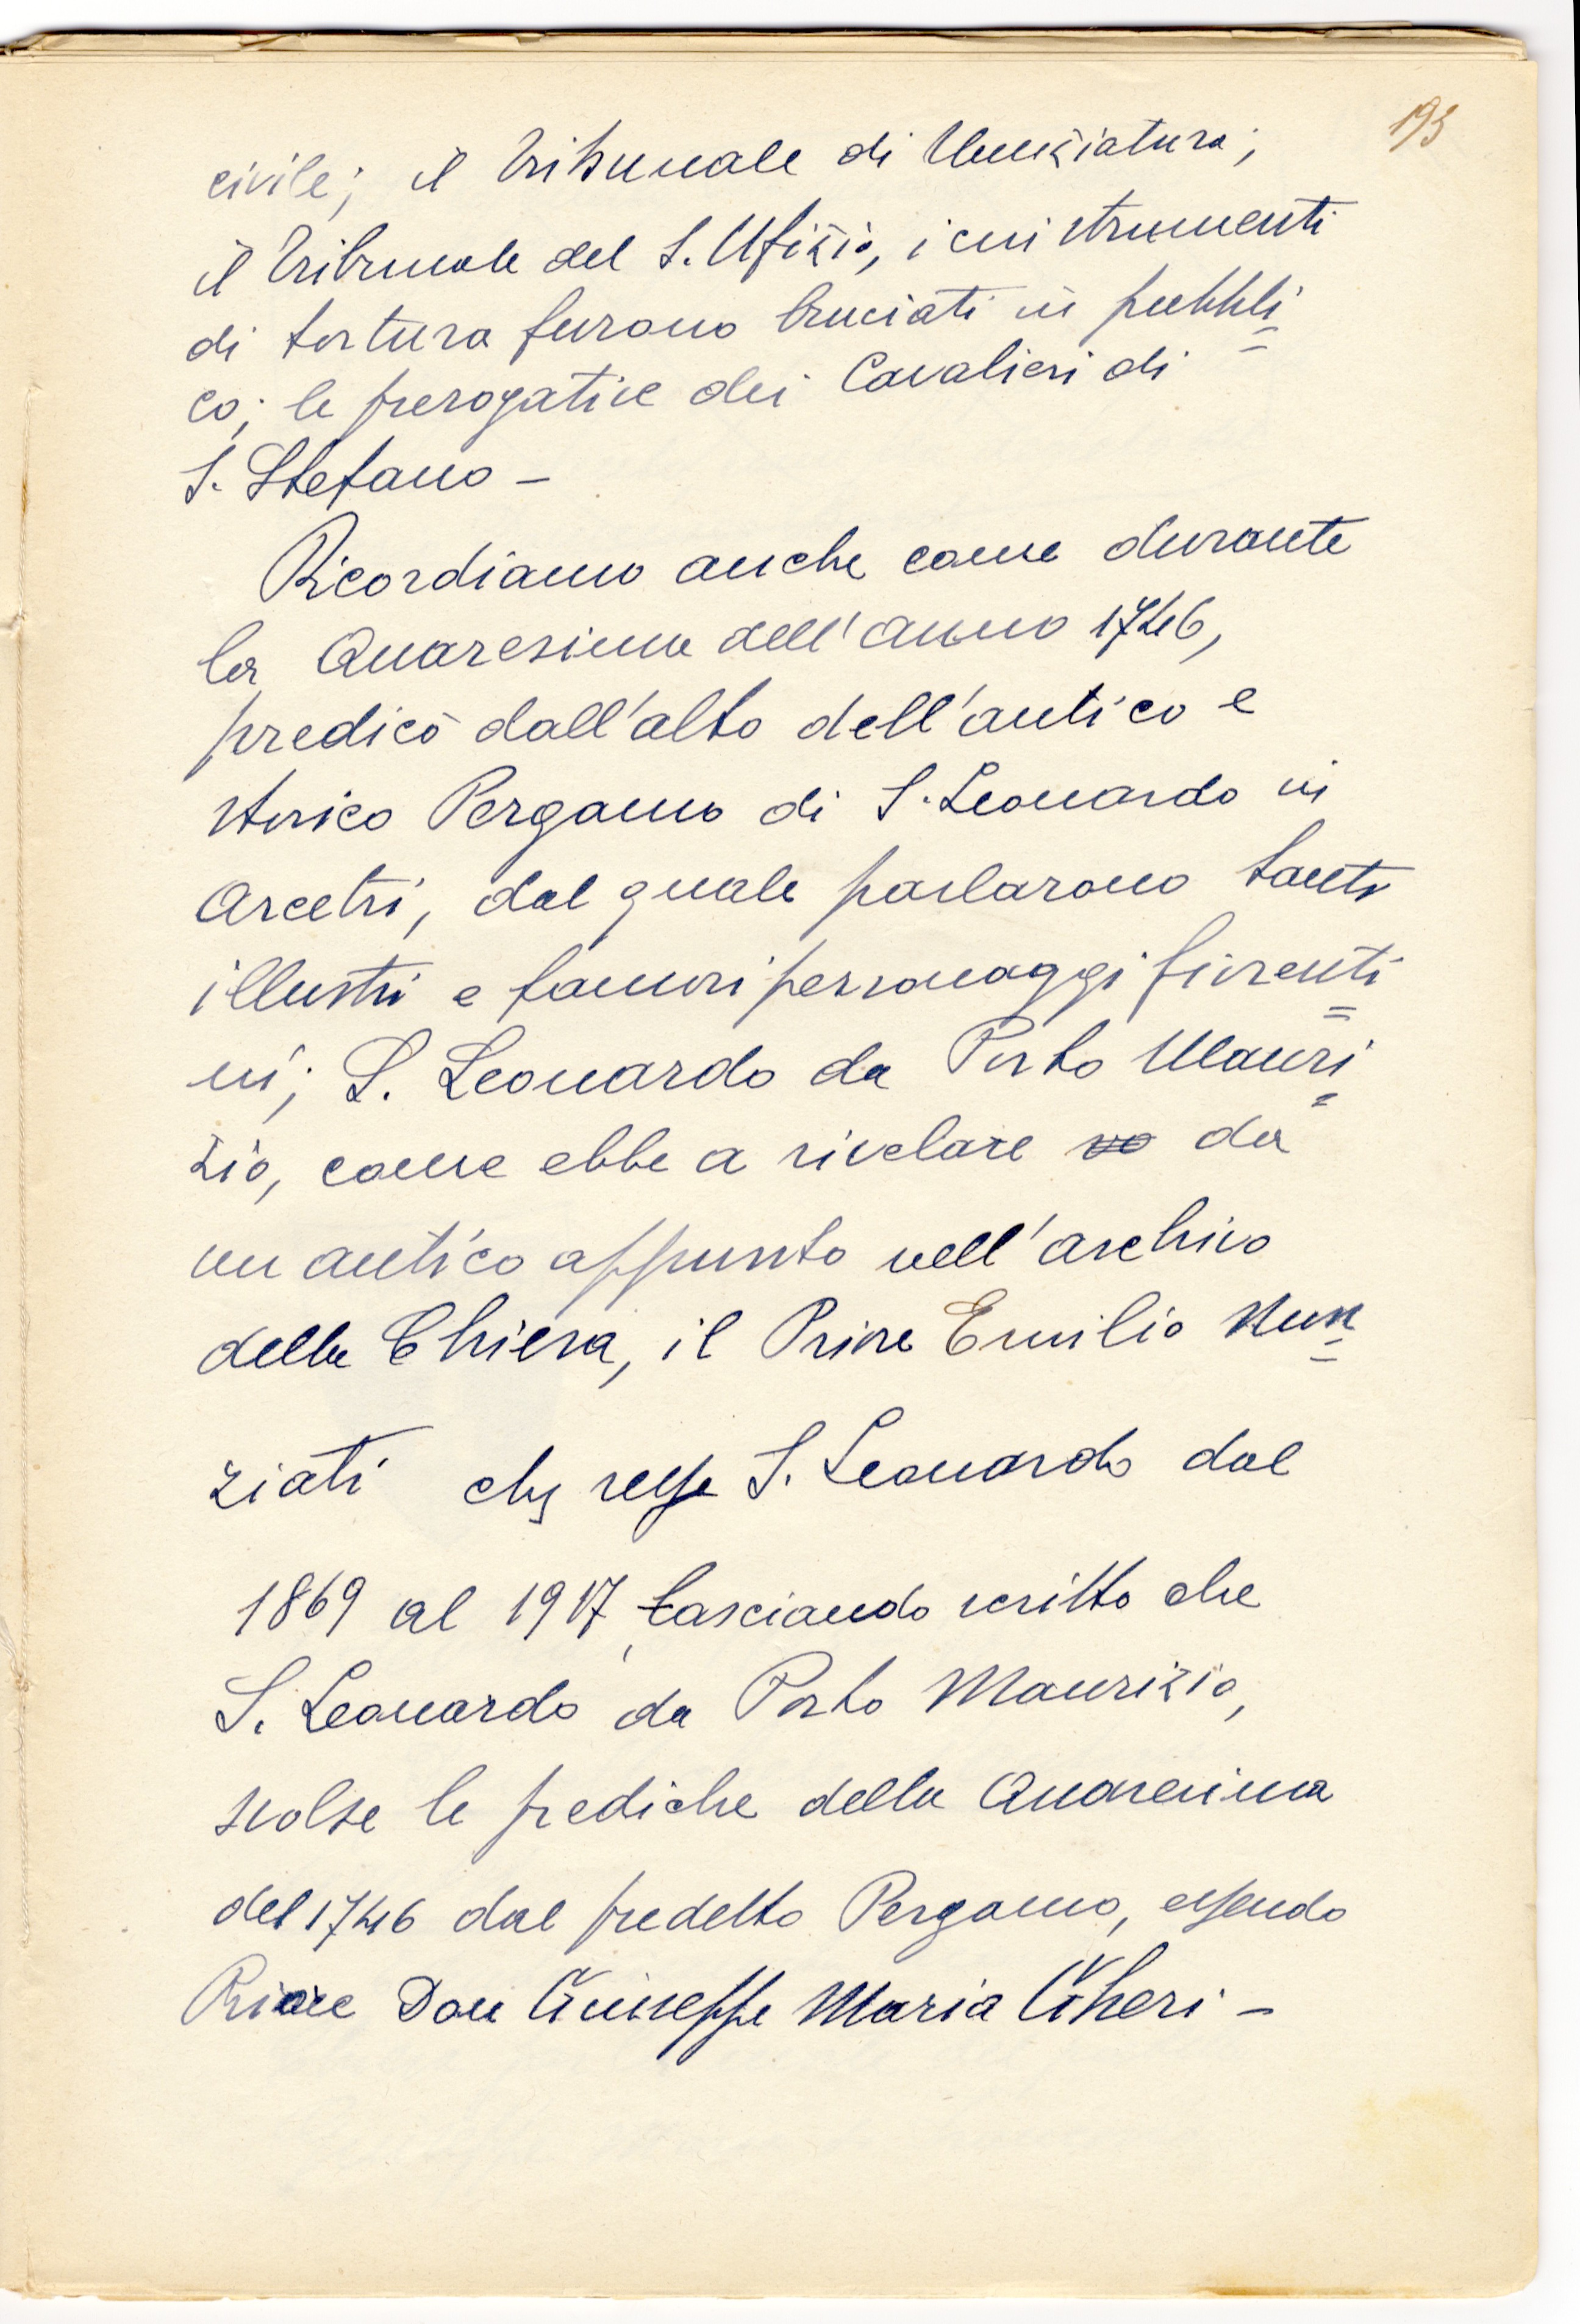 193
civile; il Tribunale di Nunziatura;
il Tribunale del S. Ufizio, i cui strumenti
di tortura furono bruciati in pubbli=
co; le prerogative dei Cavalieri di
S. Stefano -
Ricordiamo anche come durante
la Quaresima dell'anno 1746,
predicò dall'alto dell'antico e
storico Pergamo di S. Leonardo in
Arcetri, dal quale parlarono tanti
illustri e famosi personaggi fiorenti=
ni; S. Leonardo da Porto Mauri=
zio, come ebbe a rivelare da
un antico appunto nell'archivo
della Chiesa, il Priore Emilio Nun=
ziati che resse S. Leonardo dal
1869 al 1917, lasciando scritto che
S. Leonardo da Porto Maurizio,
svolse le prediche della Quaresima
del 1746 dal predetto Pergamo, essendo
Priore Don Giuseppe Maria Gheri -